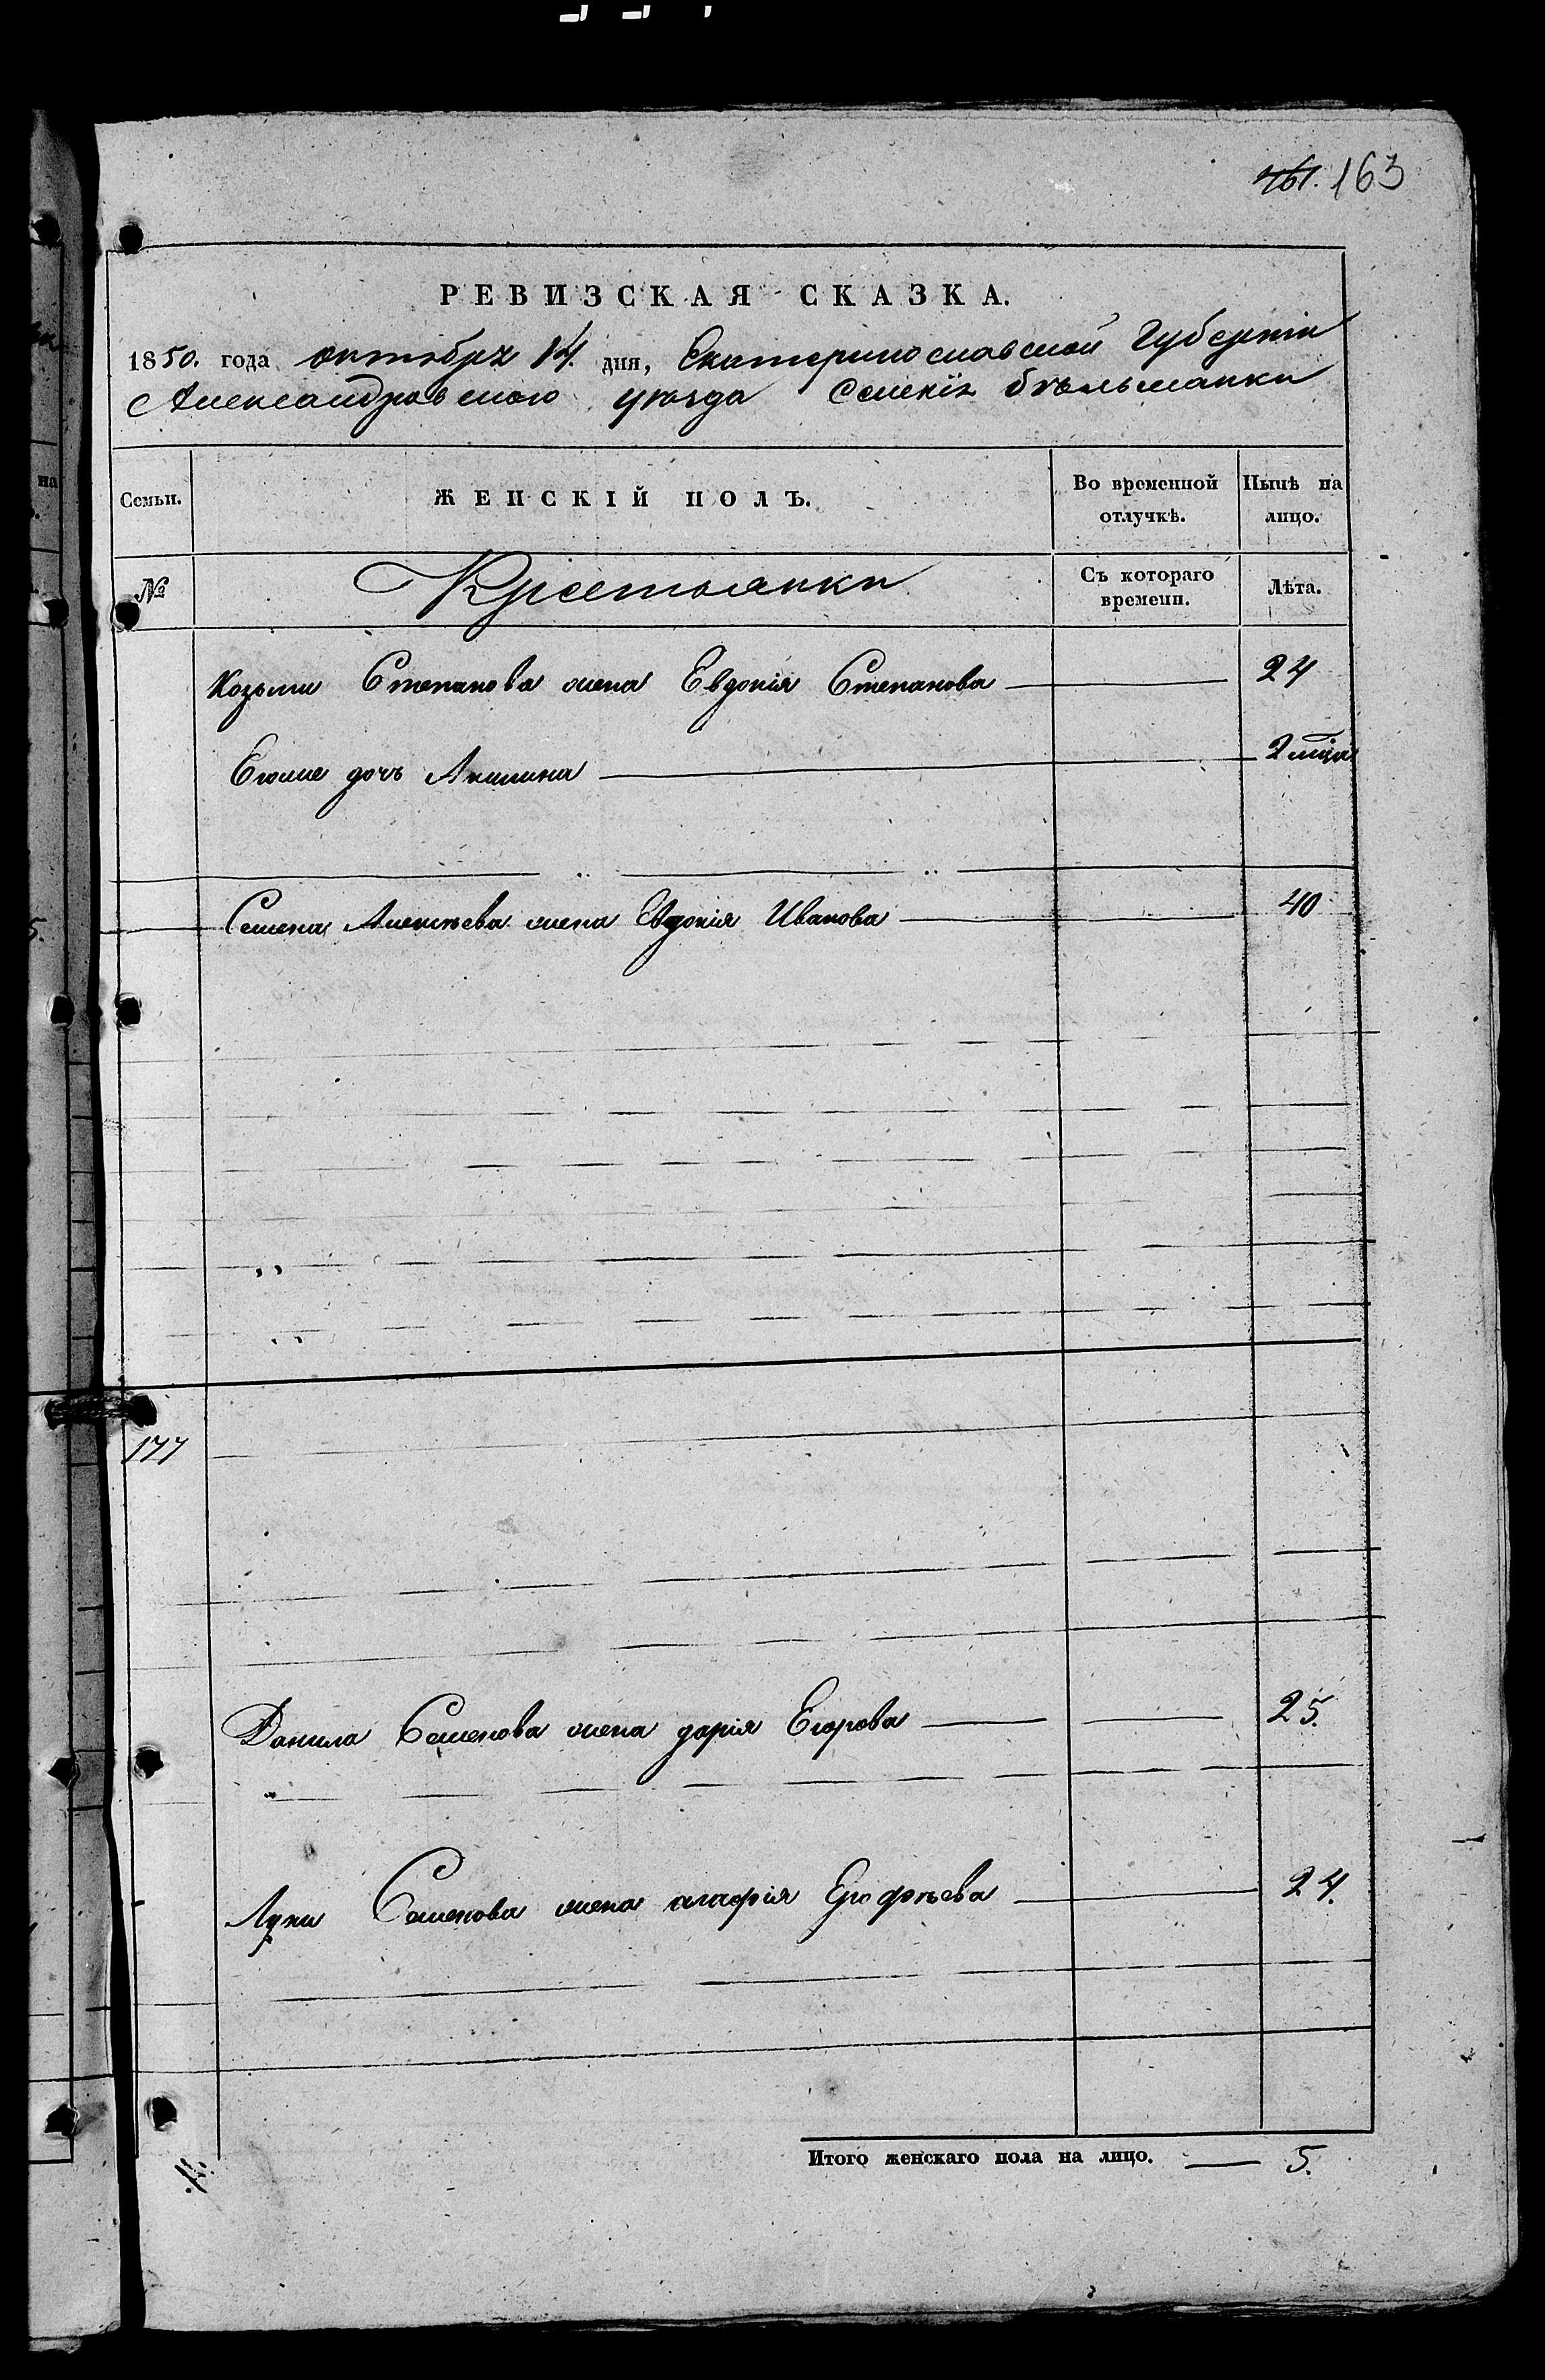 161. 163
РЕВИЗСКАЯ СКАЗКА.
1850. года октября 14. дня, Екатеринославской Губерніи
Александровского уѣзда Селенія бѣльманки
Семьи. ЖЕНСКІЙ ПОЛЪ. Во временной отлучкѣ. Нынѣ на лицо.
№ Крестьянки Съ котораго времени. Лѣта.
Козьмы Степанова жена Евдокія Степанова 24
Егоже дочь Акилина 2 мца
Семена Алексѣева жена Евдокія Иванова 40
177
Данила Семенова жена дарія Егорова 25.
Луки Семенова жена агафія Ерофѣева 24.
Итого женскаго пола на лицо. 5.